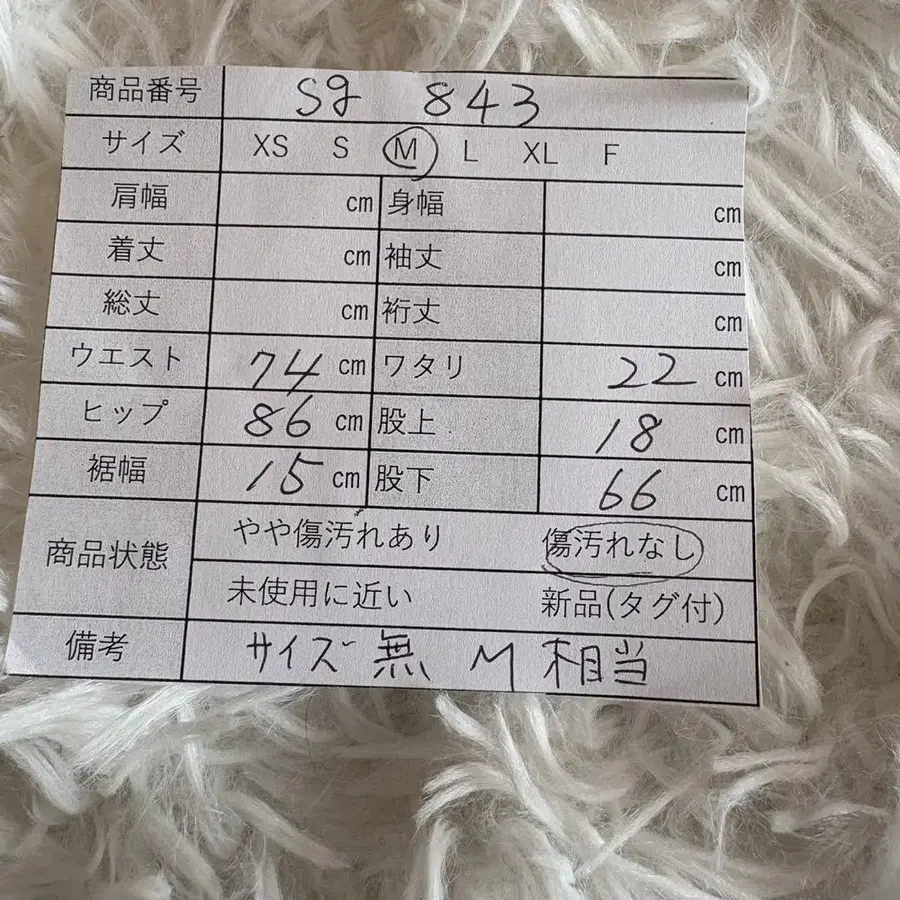 商品番号 sg 843
サイズ XS S M L XL F
肩幅 cm 身幅 cm
着丈 cm 袖丈 cm
総丈 cm 裄丈 cm
ウエスト 74 cm ワタリ 22 cm
ヒップ 86 cm 股上 18 cm
裾幅 15 cm 股下 66 cm
商品状態 やや傷汚れあり 傷汚れなし
未使用に近い 新品(タグ付)
備考 サイズ無 M相当